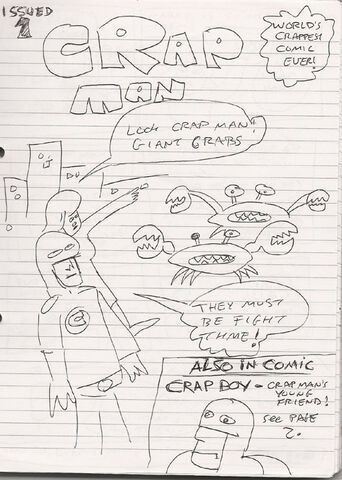 ISSUED
1
CRAP
MAN
WORLD'S
CRAPPEST
COMIC
EVER!
LOOK CRAP MAN!
GIANT CRABS
THEY MUST
BE FIGHT
THME!
ALSO IN COMIC
CRAP BOY - CRAPMAN'S
YOUNG
FRIEND!
SEE PAGE
2.